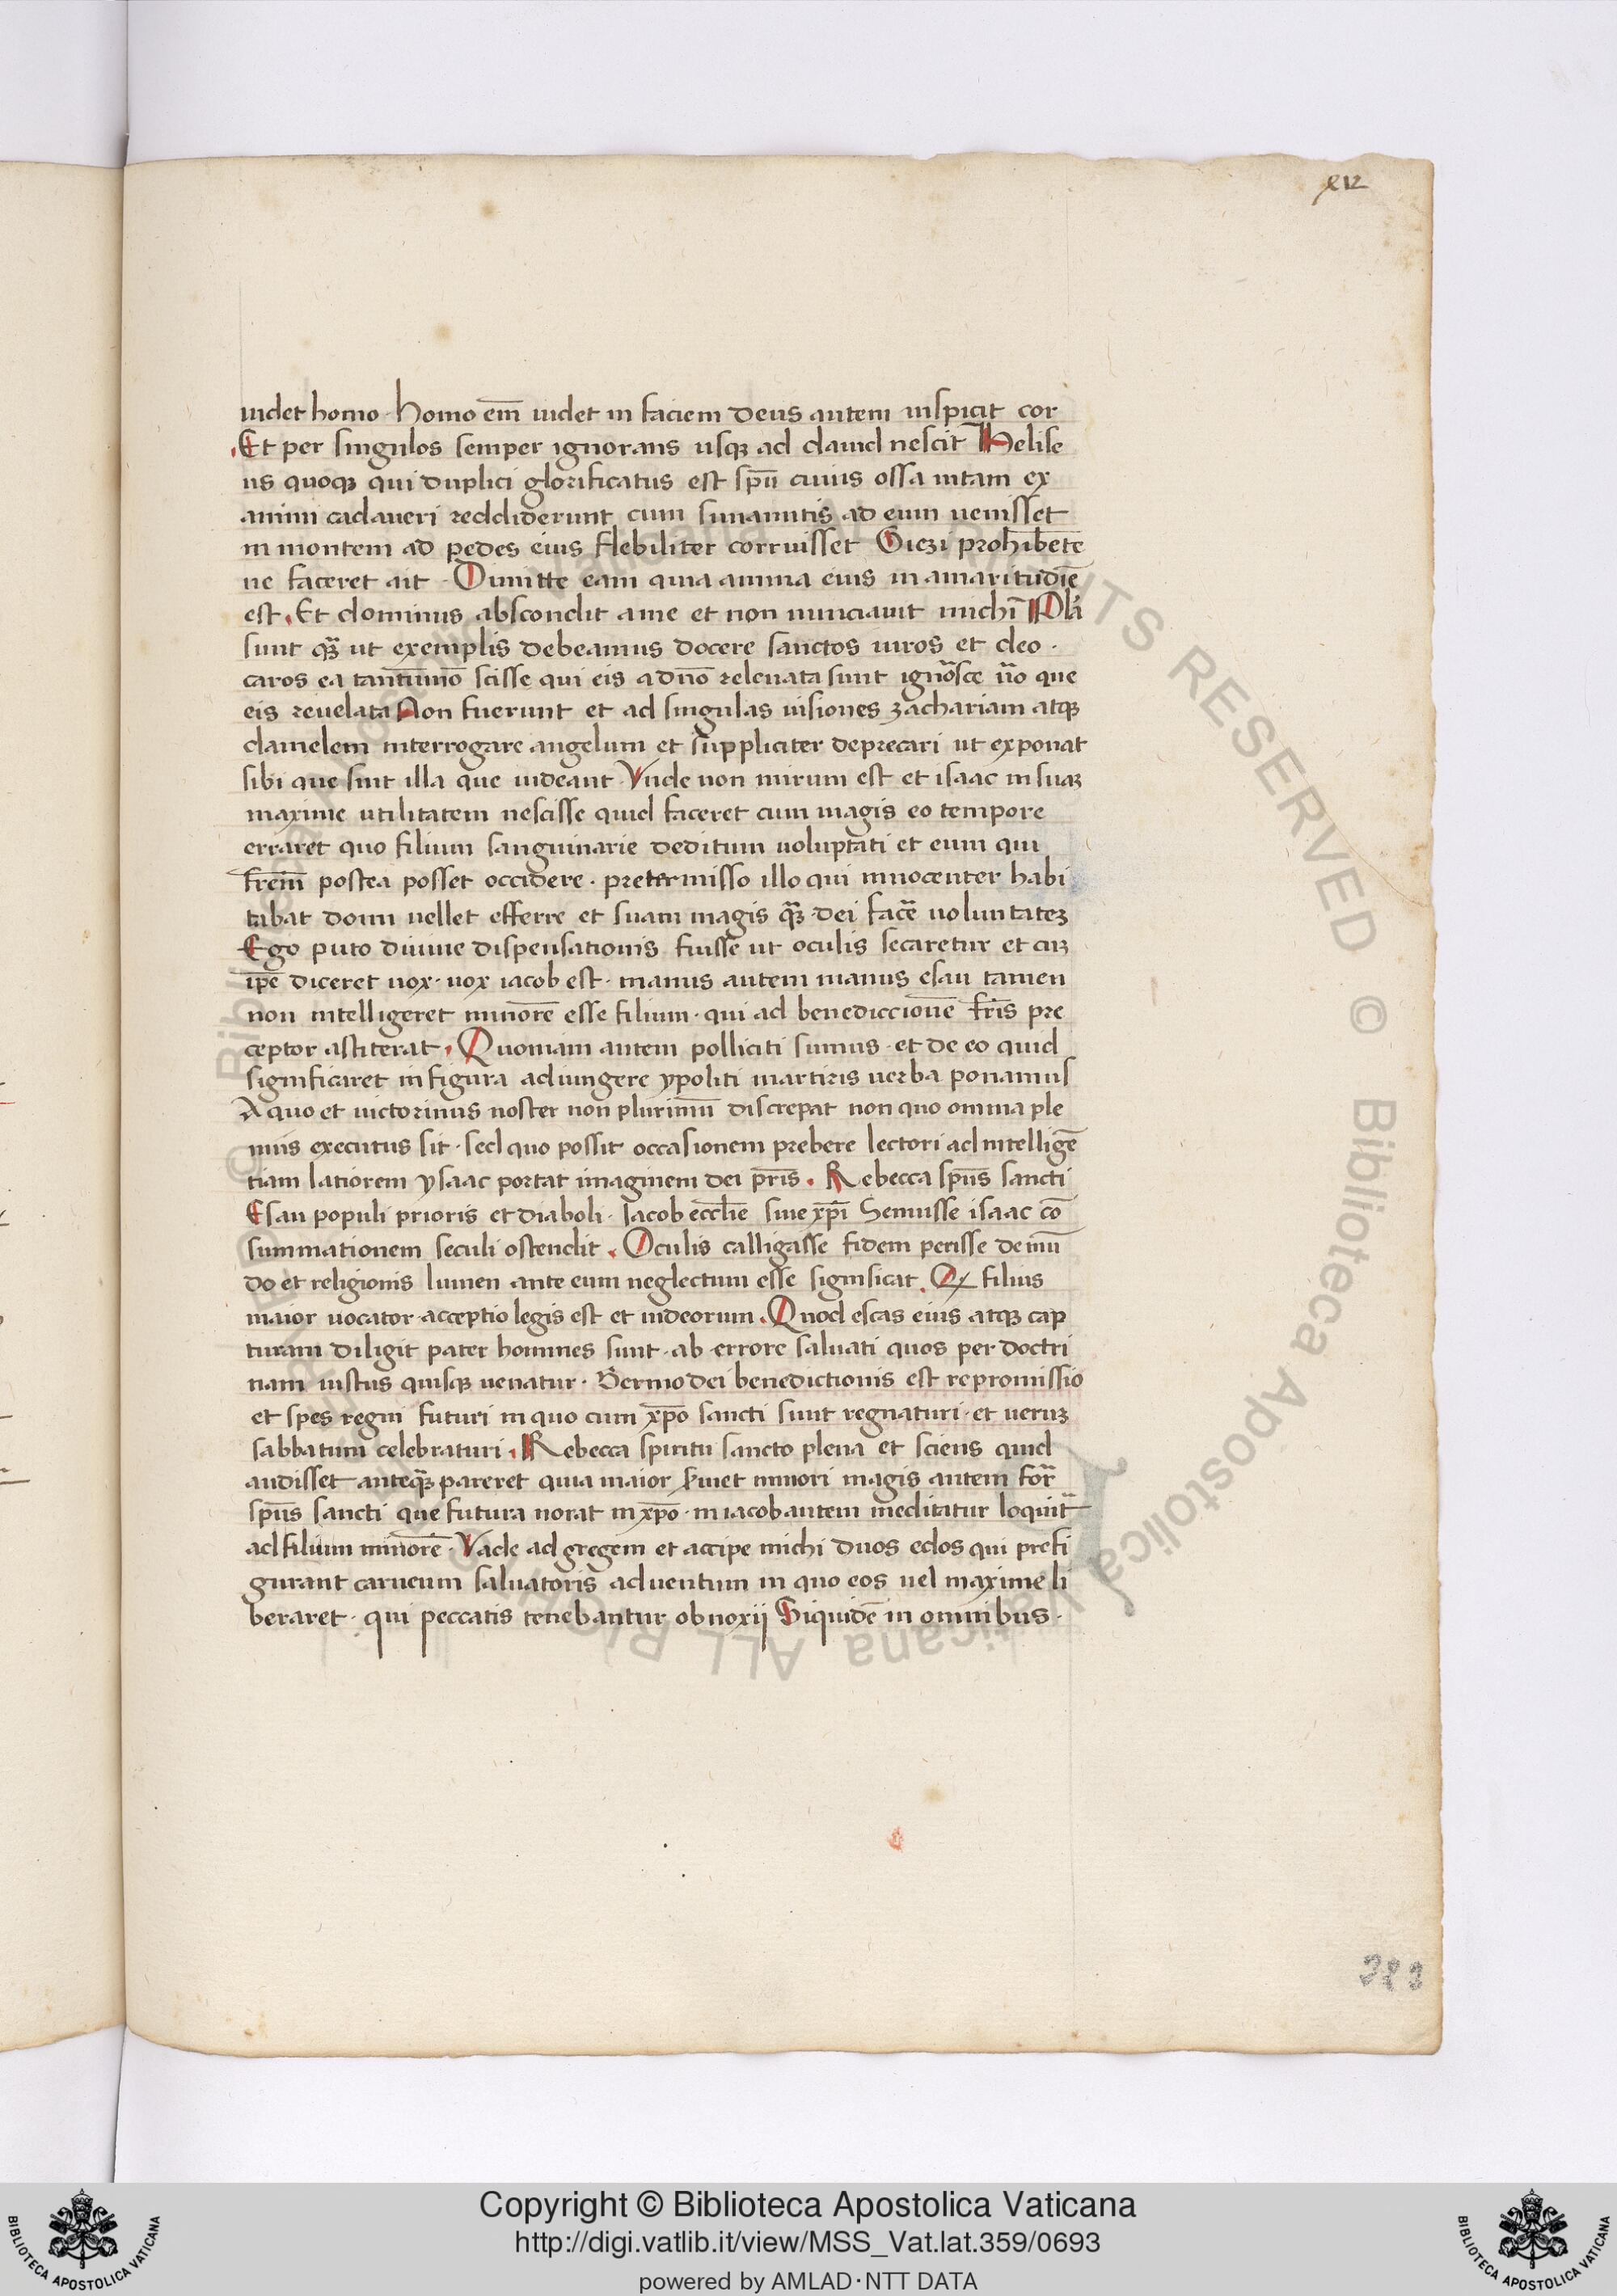 xlz
uidet homo · homo em̄ uidet in faciem deus autem inspicit cor
Et per singulos semper ignorans usqꝫ ad dauid nescit Helise
us quoqꝫ qui duplici glorificatus est sp̄u cuius ossa uitam ex
animi cadaueri reddiderunt cum sunamitis ad eum uenisset
in montem ad pedes eius flebiliter corruisset Giezi prohibētē
ne faceret ait · Dimitte eam quia anima eius in amaritudiē
est · Et dominus abscondit a me et non nunciauit michi
sunt qꝫ ut exemplis debeamus docere sanctos uiros et deo ·
caros ea tantūmō scisse qui eis a dn̄o releuata sunt ignosce ūo que
eis reuelata Non fuerunt et ad singulas uisiones zachariam atqꝫ
danielem interrogare angelum et suppliciter deprecari ut exponat
sibi que sint illa que uideant Vnde non mirum est et isaac in suaꝫ
maxime utilitatem nescisse quid faceret cum magis eo tempore
erraret quo filium sanguinarie deditum uoluptati et eum qui
frem̄ postea posset occidere · pretermisso illo qui innocenter habi
tabat domi uellet efferre et suam magis qꝫ dei facē uoluntateꝫ
Ego puto diuine dispensationis fuisse ut oculis secaretur et cuꝫ
ip̄e diceret uox · uox iacob est · manus autem manus esau tamen
non intelligeret minorē esse filium · qui ad benediccionē fr̄is pre
ceptor astiterat · Quoniam autem polliciti sumus · et de eo quid
significaret in figura adiungere ypoliti martiris uerba ponamus
A quo et uictorinus noster non plurimū discrepat non quo omnia ple
nius executus sit · sed quo possit occasionem prebere lectori ad intelligē
tiam latiorem ysaac portat imaginem dei pr̄is · Rebecca sp̄us sancti
Esau populi prioris et diaboli · Iacob eccl̄ie siue xp̄i Senuisse isaac cō
summationem seculi ostendit · Oculis calligasse fidem perisse de mū
do et religionis lumen ante eum neglectum esse significat · Qꝫ filius
maior uocator acceptio legis est et iudeorum · Quod escas eius atqꝫ cap
turam diligit pater homines sunt · ab errore saluati quos per doctri
nam iustus quisqꝫ uenatur · Sermo dei benedictionis est repromissio
et spes regni futuri in quo cum xp̄o sancti sunt regnaturi · et ueruꝫ
sabbatum celebraturi · Rebecca spiritu sancto plena et sciens quid
audisset anteqꝫ pareret quia maior ꝭuiet minori magis autem for̄
sp̄us sancti que futura norat in xp̄o · in iacob autem meditatur loquit̄
ad filium minorē · Vade ad gregem et accipe michi duos edos qui prefi
gurant carneum saluatoris aduentum in quo eos uel maxime li
beraret · qui peccatis tenebantur obnoxij Siquidē in omnibus ·
© Biblioteca Apostolica Vaticana ALL RIGHTS RESERVED © Biblioteca Apostolica Vaticana ALL RIGHTS RESERVED
Copyright © Biblioteca Apostolica Vaticana
http://digi.vatlib.it/view/MSS_Vat.lat.359/0693
powered by AMLAD·NTT DATA
BIBLIOTECA APOSTOLICA VATICANA
BIBLIOTECA APOSTOLICA VATICANA